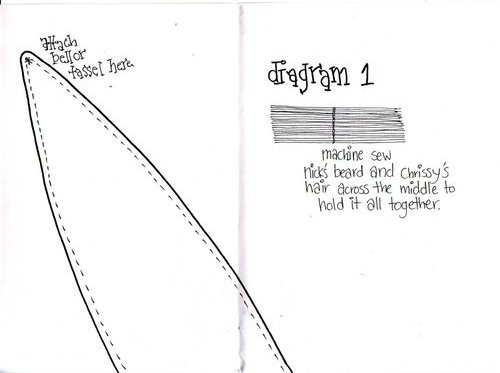 attach
bell or
tassel here
diagram 1
machine sew
nick's beard and Chrissy's
hair across the middle to
hold it all together.